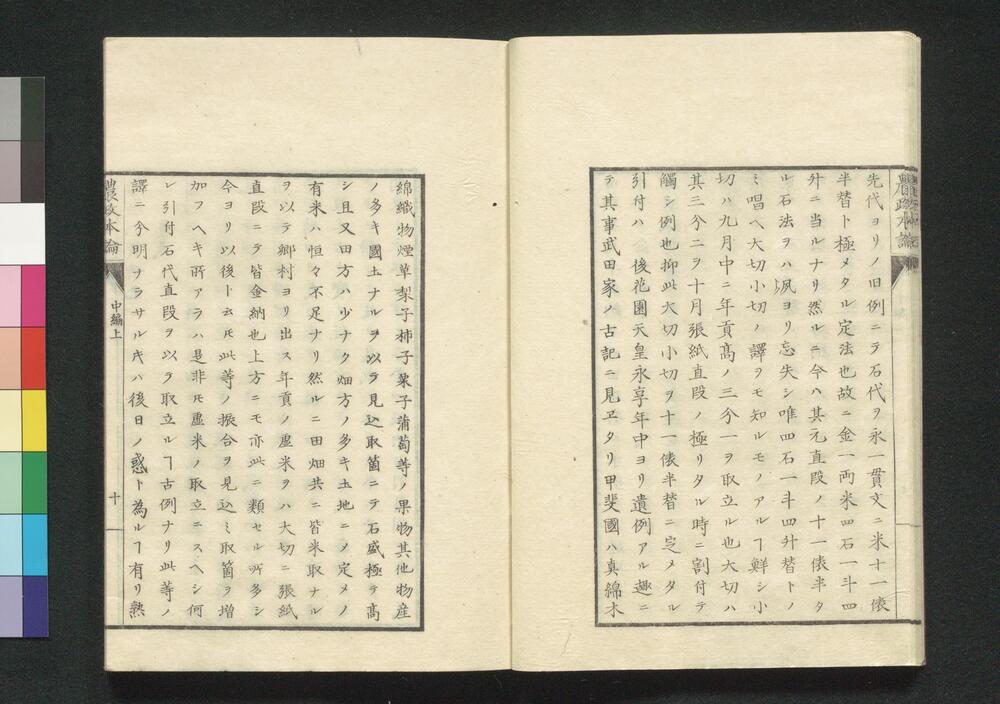 先代ヨリノ旧例ニテ石代ヲ永一貫文ニ米十一俵
半替ト極メタル定法也故ニ金一両米四石一斗四
升ニ当ルナリ然ルニ今ハ其元直段ノ十一俵半タ
ル石法ヲハ夙ヨリ忘失シ唯四石一斗四升替トノ
ミ唱ヘ大切小切ノ譯ヲモ知ルモノアルヿ鮮シ小
切ハ九月中ニ年貢髙ノ三分一ヲ取立ル也大切ハ
其三分二ヲ十月張紙直段ノ極リタル時ニ割付テ
觸シ例也抑此大切小切ヲ十一俵半替ニ定メタル
引付ハ 後花園天皇永享年中ヨリ遺例アル趣ニ
テ其事武田家ノ古記ニ見ヱタリ甲斐國ハ真綿木
綿織物煙草梨子柿子栗子蒲萄等ノ果物其他物産
ノ多キ國土ナルヲ以ラ見込取箇ニテ石盛極テ高
シ且又田方ハ少ナク畑方ノ多キ土地ニメ定メノ
有米ハ恒々不足ナリ然ルニ田畑共ニ皆米取ナル
ヲ以テ郷村ヨリ出ス年貢ノ虚米ヲハ大切ニ張紙
直段ニテ皆金納也上方ニモ亦此ニ類セル所多シ
今ヨリ以後ト云𪜈此等ノ振合ヲ見込ミ取箇ヲ増
加フヘキ所アラハ是非𪜈虚米ノ取立ニスヘシ何
レ引付石代直段ヲ以ラ取立ルヿ古例ナリ此等ノ
譯ニ分明ナラサルキハ後日ノ惑ト為ルヿ有リ熟
農政本論
中編上
十